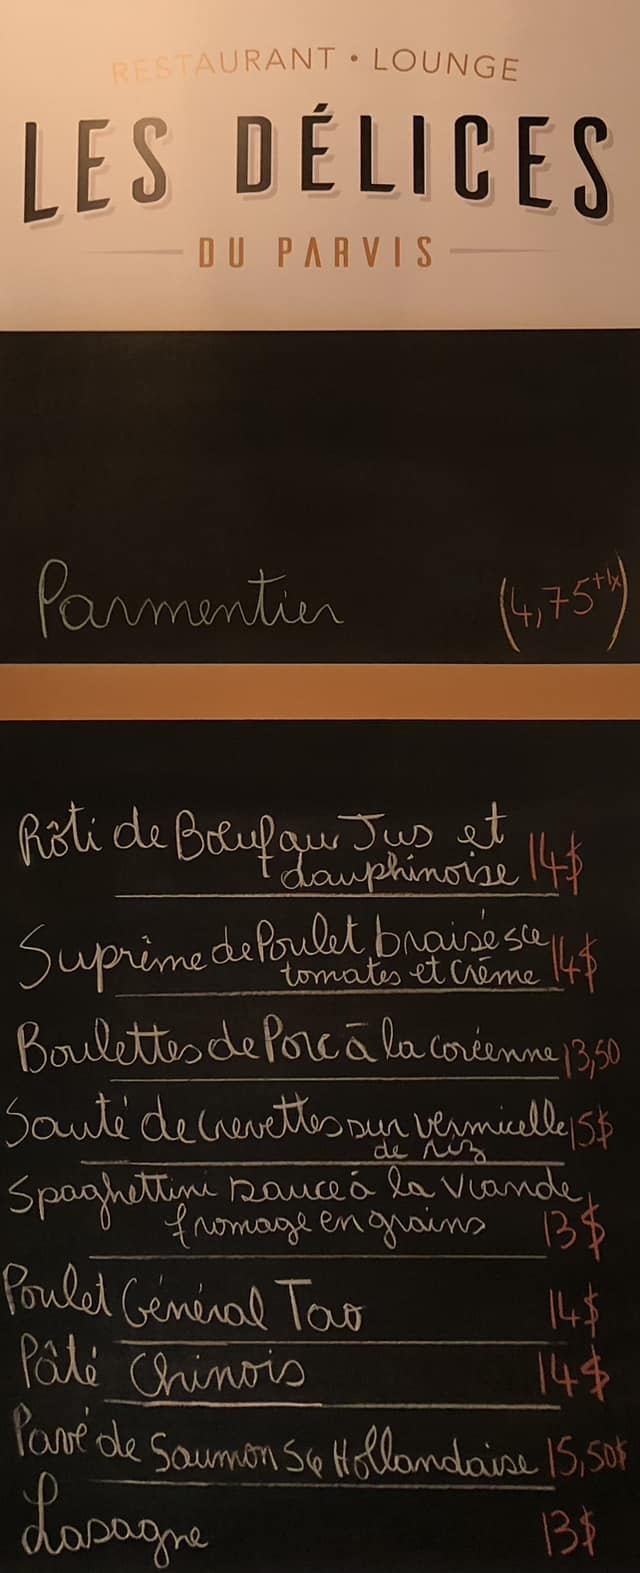 RESTAURANT • LOUNGE
LES DÉLICES
DU PARVIS
Parmentier (4,75+tx)
Rôti de Bœuf au Jus et
dauphinoise 14$
Suprême de Poulet braisé sce
tomates et Crème 14$
Boulettes de Porc à la coréenne 13,50
Sauté de Crevettes sur vermicelle 15$
de riz
Spaghettini sauce à la viande
fromage en grains 13$
Poulet Général Tao 14$
Pâté Chinois 14$
Pavé de Saumon Sc Hollandaise 15,50$
Lasagne 13$